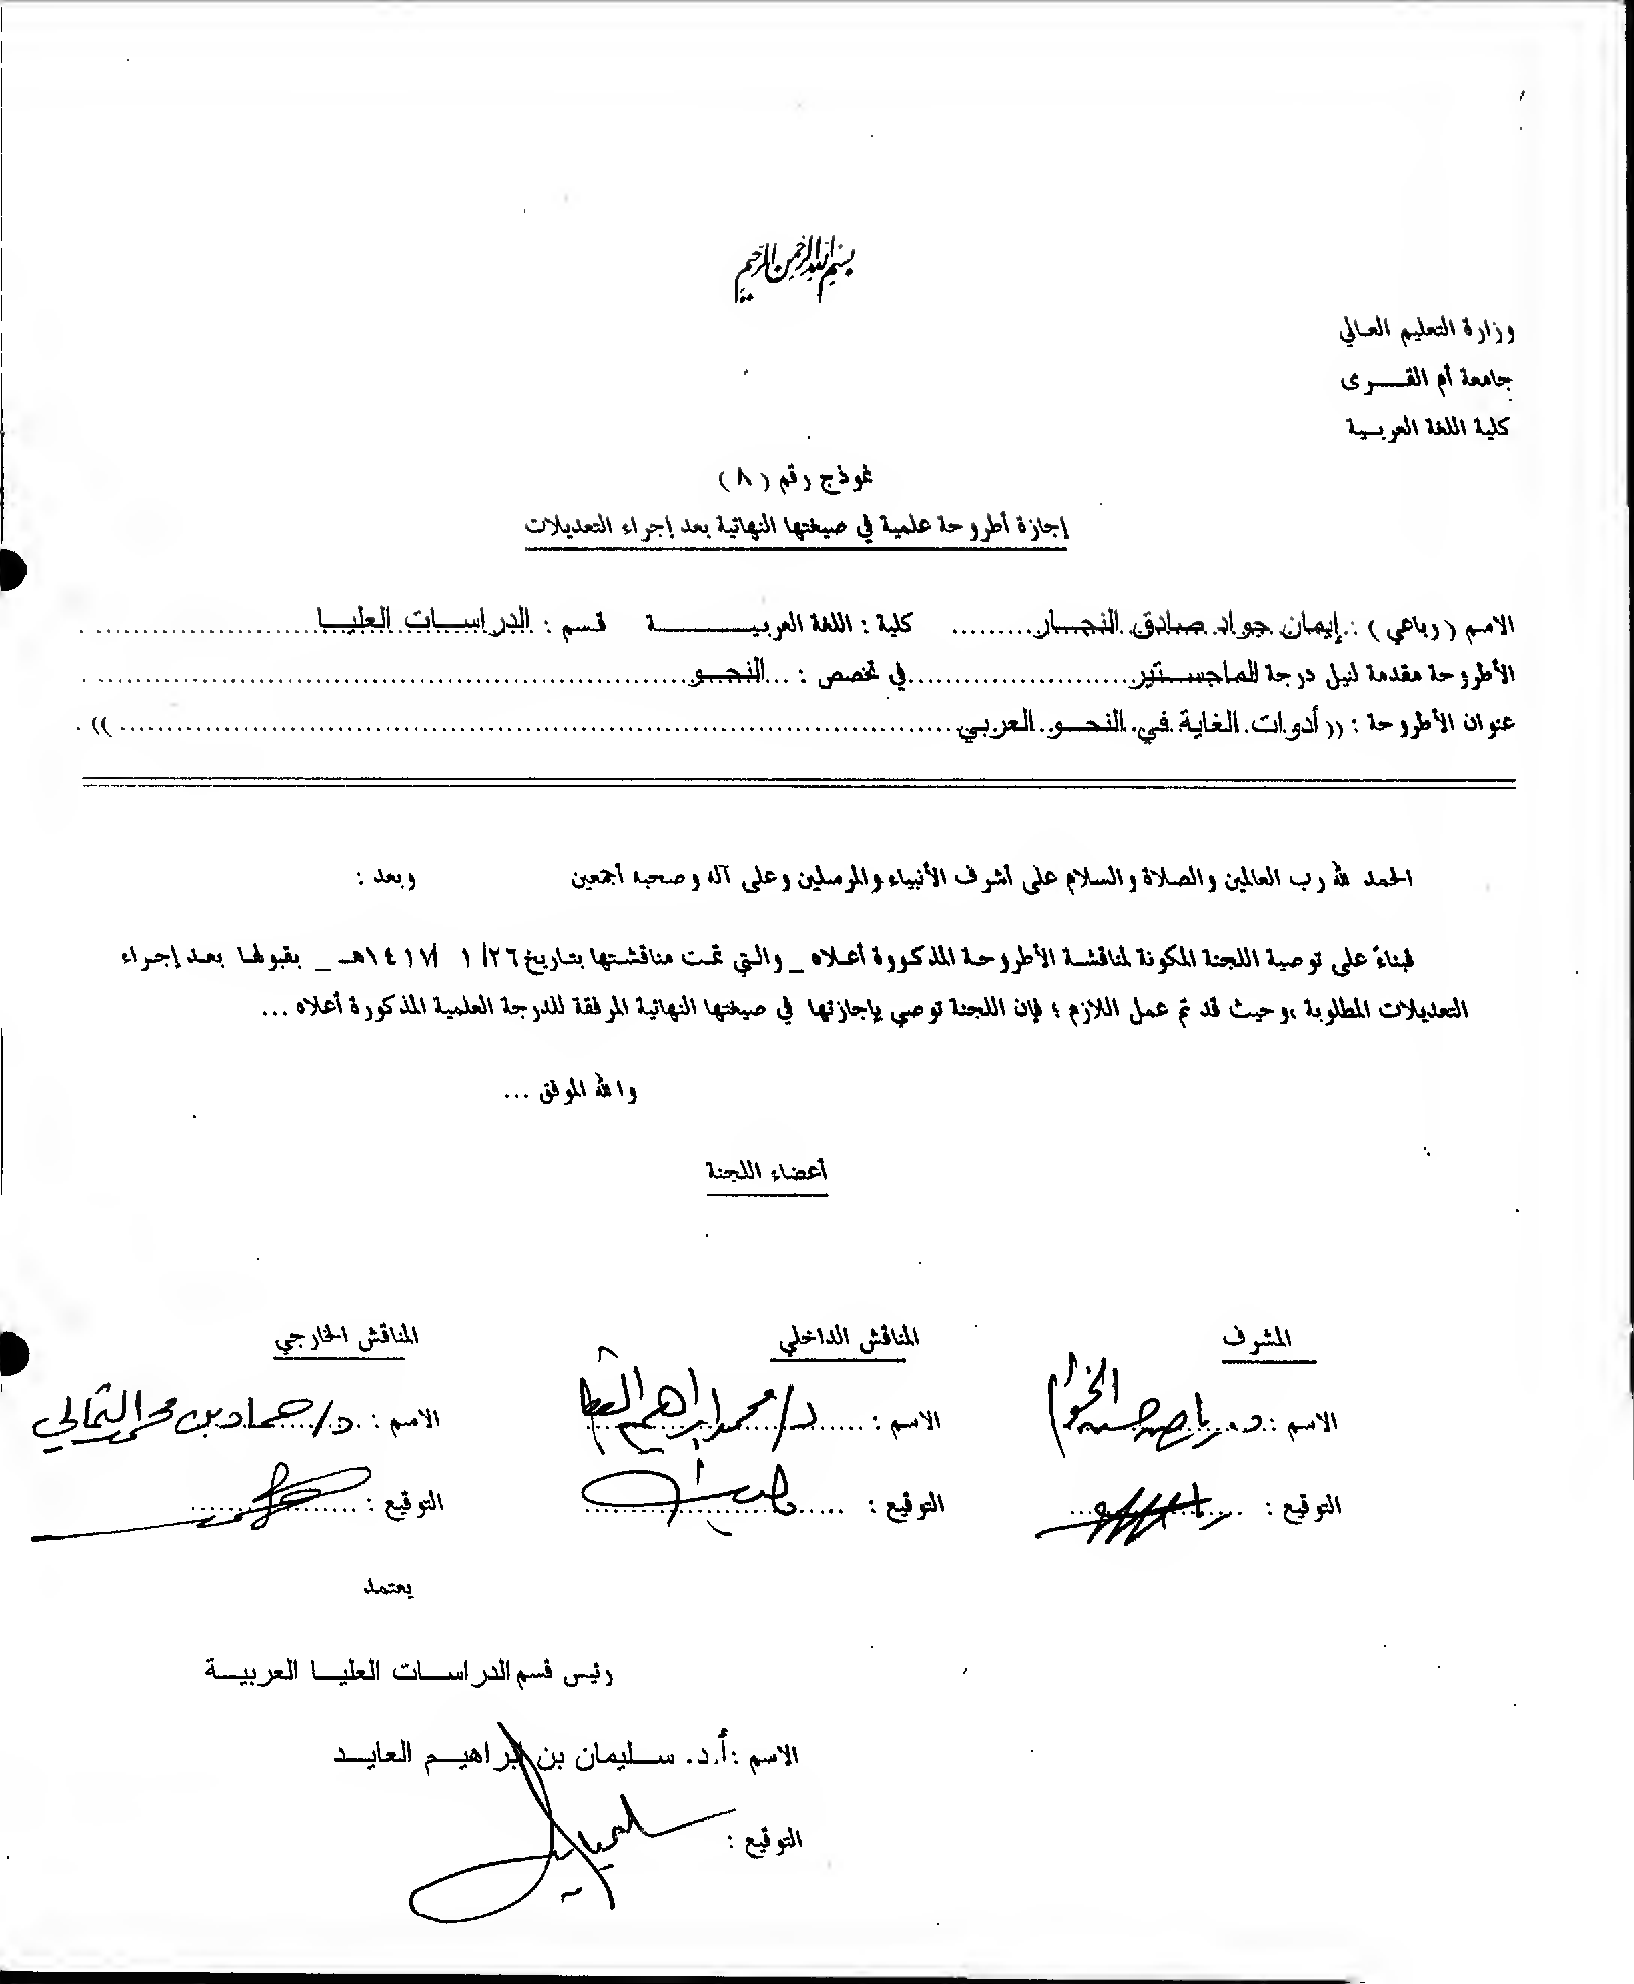 بسم الله الرحمن الرحيم
وزارة التعليم العالي
جامعة أم القـــرى
كلية اللغة العربية
نموذج رقم ( ٨ )
إجازة أطروحة علمية في صيغتها النهائية بعد إجراء التعديلات
الاسم ( رباعي ) : إيمان جواد صادق النجار كلية : اللغة العربيــــــــة قسم : الدراسات العليا
الأطروحة مقدمة لنيل درجة الماجستير في تخصص : النحو
عنوان الأطروحة : (( أدوات الغاية في النحو العربي ))
الحمد لله رب العالمين والصلاة والسلام على أشرف الأنبياء والمرسلين وعلى آله وصحبه أجمعين وبعد :
فبناءً على توصية اللجنة المكونة لمناقشة الأطروحة المذكورة أعلاه _ والتي تمت مناقشتها بتاريخ ٢٦/ ١ /١٤١٧هـ _ بقبولها بعد إجراء
التعديلات المطلوبة ،وحيث قد تم عمل اللازم ؛ فإن اللجنة توصي بإجازتها في صيغتها النهائية المرفقة للدرجة العلمية المذكورة أعلاه ...
والله الموفق ...
أعضاء اللجنة
المشرف المناقش الداخلي المناقش الخارجي
الاسم : د. رياض حسن الخوام الاسم : د/ محمد ابراهيم الاسم : د/ حماد بن محمد الثمالي
التوقيع : التوقيع : التوقيع :
يعتمد
رئيس قسم الدراسات العليا العربية
الاسم : أ.د. سليمان بن إبراهيم العايد
التوقيع :